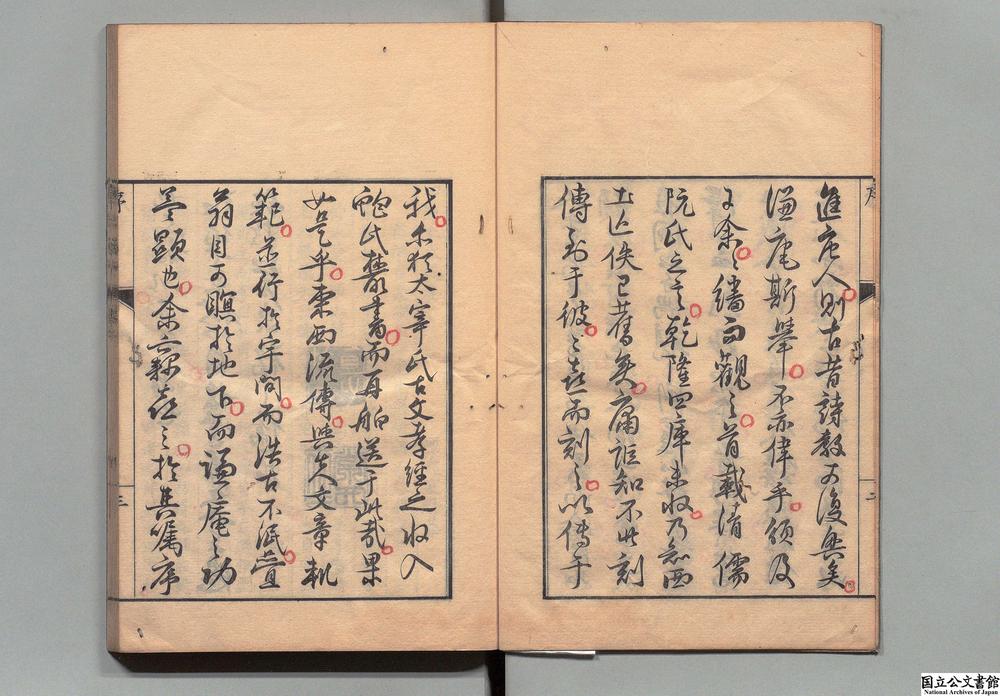 進唐人則古昔詩教可復興矣
謙庵斯舉不亦偉乎頃及
于余々繙而觀之首載清儒
阮氏之言乾隆四庫未收乃知西
土亡佚已舊矣庸詎知不此刻
傳到于彼々喜而刻之以傳于
我亦猶太宰氏古文孝經之收入
鮑氏叢書而再舶送于此哉果
如是乎東西流傳與夫文章軌
範並行於宇間而浩古不泯豈
翁目可瞑於地下而謙々庵之功
莫顯也余亦竊喜之於其囑序
序
二
序
三
国立公文書館
National Archives of Japan